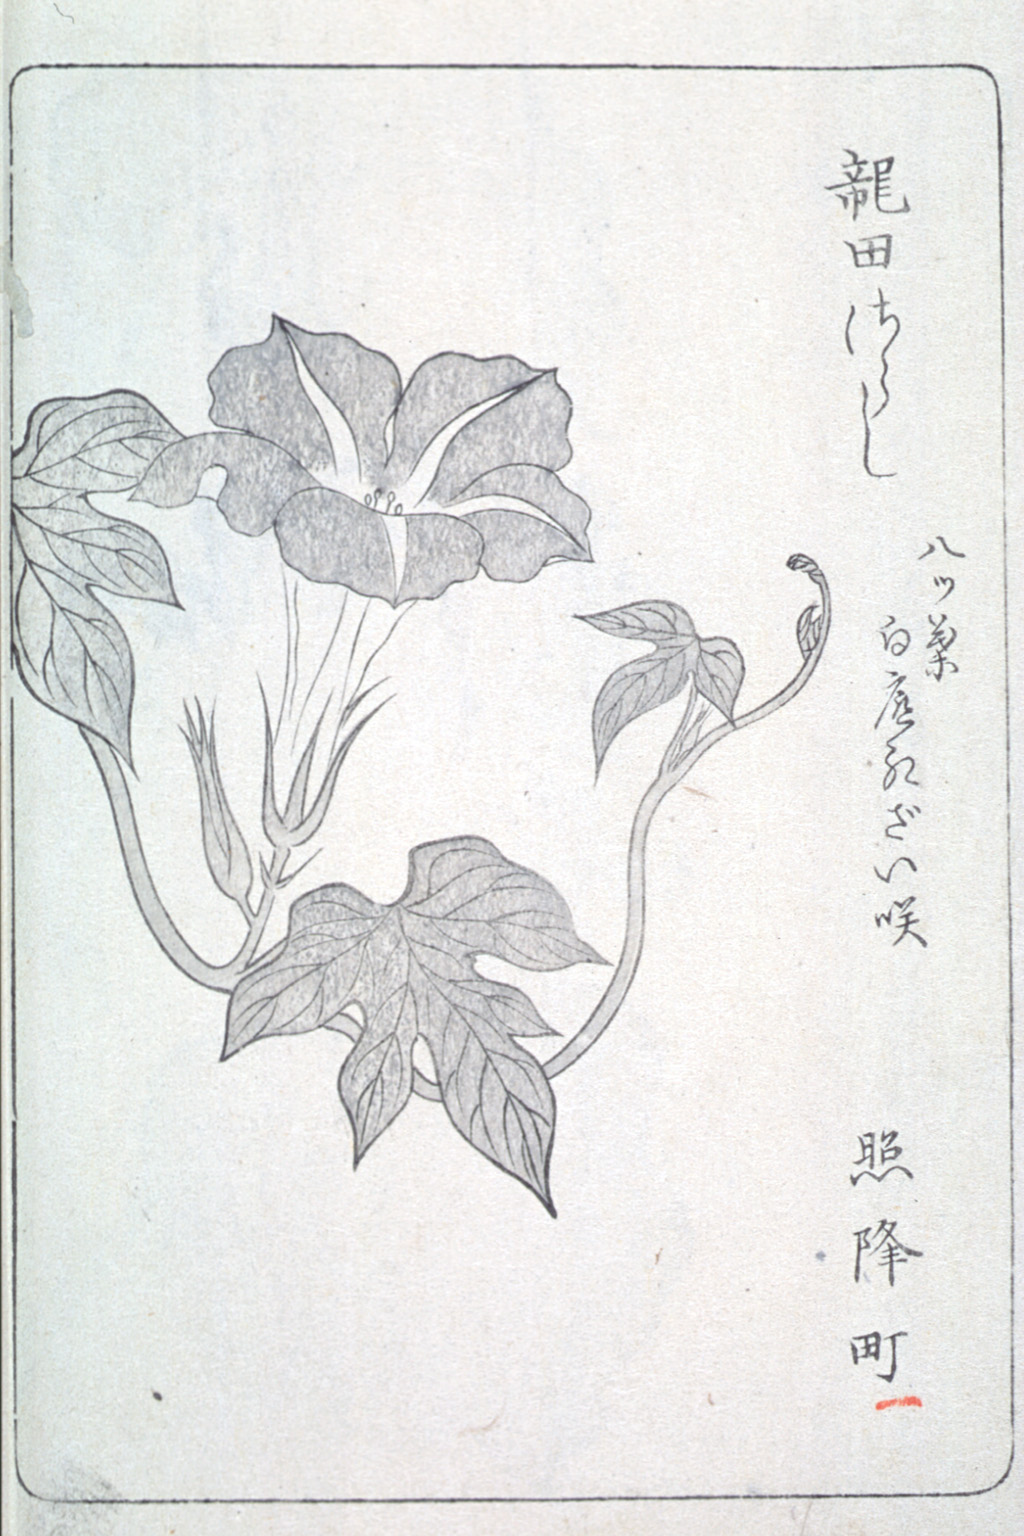 龍田あらし
八ツ葉
白底紅ざい咲
照降町